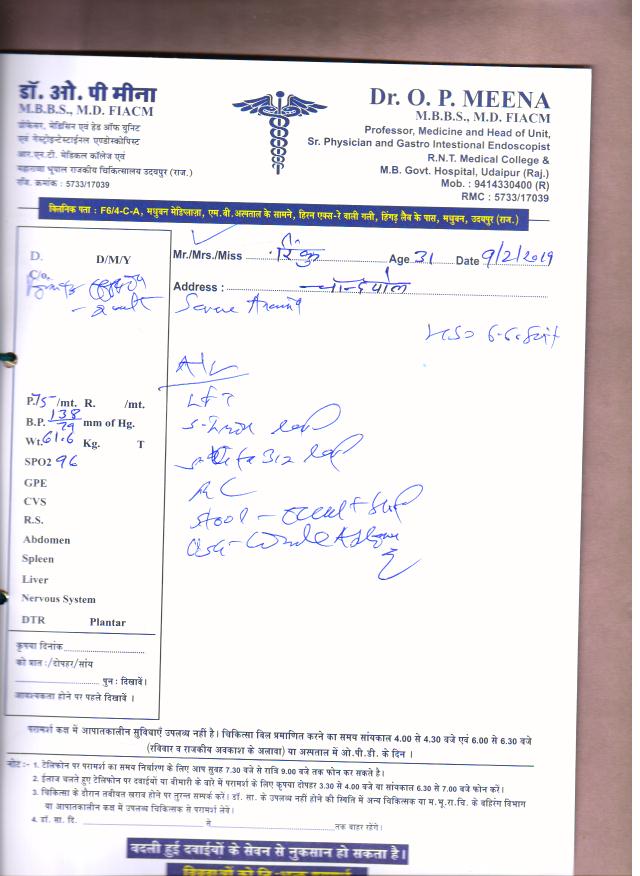 डॉ. ओ. पी मीना
M.B.B.S., M.D. FIACM
प्रोफेसर, मेडिसिन एवं हेड ऑफ युनिट
एवं गेस्ट्रोइन्टेस्टाईनल एण्डोस्कोपिस्ट
आर.एन.टी. मेडिकल कॉलेज एवं
महाराणा भूपाल राजकीय चिकित्सालय उदयपुर (राज.)
रजि. क्रमांक : 5733/17039
Dr. O. P. MEENA
M.B.B.S., M.D. FIACM
Professor, Medicine and Head of Unit,
Sr. Physician and Gastro Intestional Endoscopist
R.N.T. Medical College &
M.B. Govt. Hospital, Udaipur (Raj.)
Mob. : 9414330400 (R)
RMC : 5733/17039
क्लिनिक पता : F6/4-C-A, मधुबन मेडिप्लाज़ा, एम.बी.अस्पताल के सामने, हिरन एक्स-रे वाली गली, हिंगड़ लैब के पास, मधुबन, उदयपुर (राज.)
Mr./Mrs./Miss रिंकु Age 31 Date 9/2/2019
Address :
D. D/M/Y
C/o.
Severe
LFT
P. 75/mt. R. /mt.
B.P. 138/79 mm of Hg.
Wt. 61.6 Kg. T
SPO2 96
GPE
CVS
R.S.
Abdomen
Spleen
Liver
Nervous System
DTR Plantar
S-Iron
RC
Stool -
कृपया दिनांक
को प्रातः/दोपहर/सांय
पुनः दिखावें।
आवश्यकता होने पर पहले दिखावें ।
परामर्श कक्ष में आपातकालीन सुविधाएँ उपलब्ध नहीं है। चिकित्सा बिल प्रमाणित करने का समय सांयकाल 4.00 से 4.30 बजे एवं 6.00 से 6.30 बजे
(रविवार व राजकीय अवकाश के अलावा) या अस्पताल में ओ.पी.डी. के दिन ।
नोट :- 1. टेलिफोन पर परामर्श का समय निर्धारण के लिए आप सुबह 7.30 बजे से रात्रि 9.00 बजे तक फोन कर सकते है।
2. ईलाज चलते हुए टेलिफोन पर दवाईयों या बीमारी के बारे में परामर्श के लिए कृपया दोपहर 3.30 से 4.00 बजे या सांयकाल 6.30 से 7.00 बजे फोन करें।
3. चिकित्सा के दौरान तबीयत खराब होने पर तुरन्त सम्पर्क करें। डॉ. सा. के उपलब्ध नहीं होने की स्थिति में अन्य चिकित्सक या म.भू.रा.चि. के बहिरंग विभाग
या आपातकालीन कक्ष में उपलब्ध चिकित्सक से परामर्श लेवें।
4. डॉ. सा. दि. से तक बाहर रहेंगे।
बदली हुई दवाईयों के सेवन से नुकसान हो सकता है।